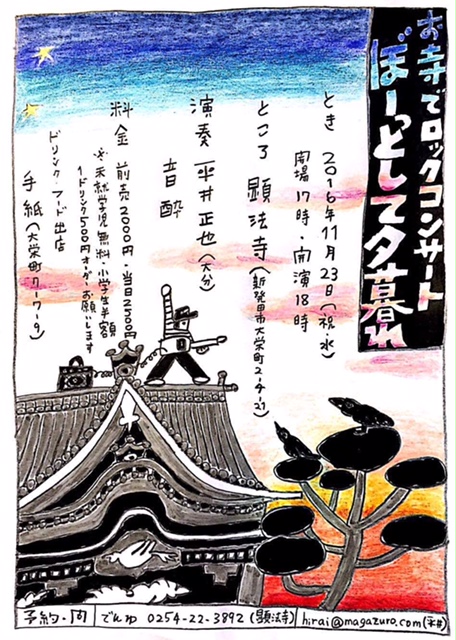 お寺でロックコンサート
ぼーっとして夕暮れ
とき 2016年11月23日(祝・水)
開場17時・開演18時
ところ 顕法寺(新発田市大栄町2-4-21)
演奏 平井正也(大分)
音酔
料金 前売2000円・当日2500円
※未就学児無料・小学生半額
1ドリンク500円オーダーお願いします
ドリンク、フード出店
手紙(大栄町7-7-9)
予約・問
でんわ 0254-22-3892(顕法寺)
hirai@magazuro.com(平井)